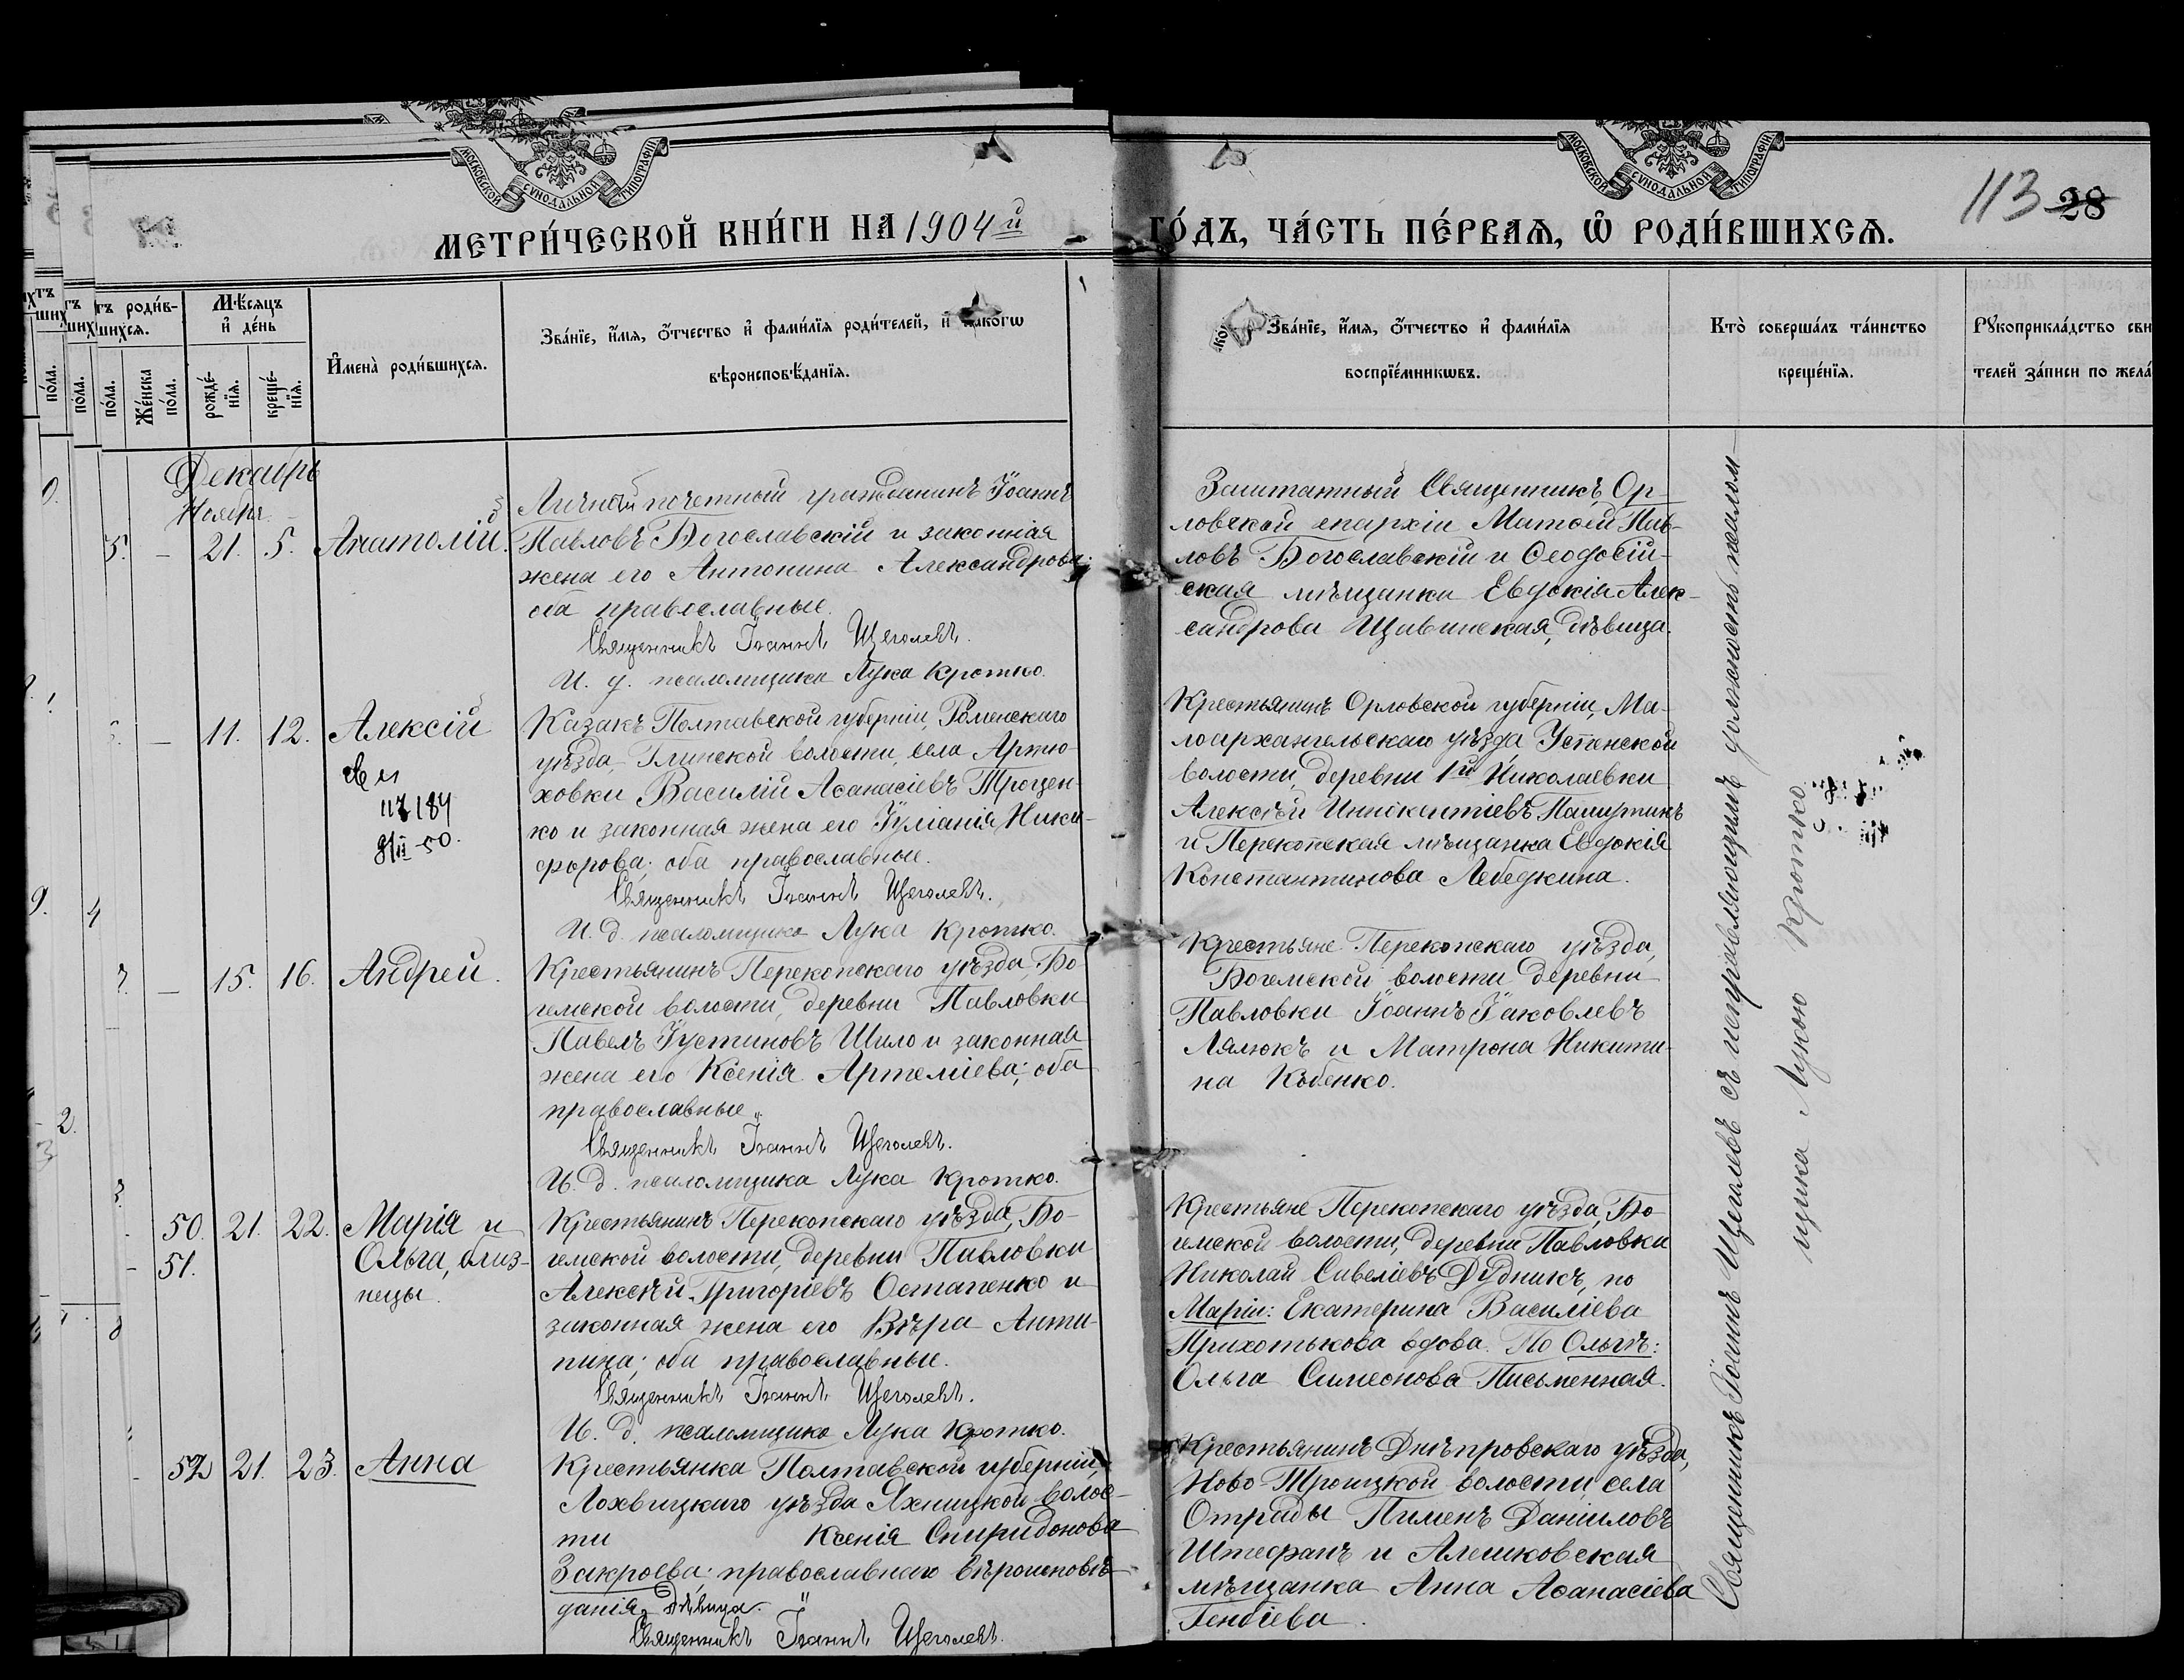 МОСКОВСКОЙ СѴНОДАЛЬНОЙ ТИПОГРАФІИ
МОСКОВСКОЙ СѴНОДАЛЬНОЙ ТИПОГРАФІИ
МЕТРИ́ЧЕСКОЙ КНИ́ГИ НА 1904й
ГО́ДЪ, ЧА́СТЬ ПЕ́РВАЯ, Ѡ҆ РОДИ́ВШИХСЯ.
113 28
тъ роди́в-
шихся.
по́ла.
Же́нска по́ла.
Мѣ́сяцъ
и҆ де́нь
рожде́-
нїя.
креще́-
нїя.
И҆мена̀ роди́вшихся.
Зва́нїе, и҆́мя, ѻ҆́тчество и҆ фами́лїя роди́телей, и҆ какогѡ
вѣроисповѣ́данїя.
Зва́нїе, и҆́мя, ѻ҆́тчество и҆ фами́лїя
воспрїе́мникѡвъ.
Кто̀ соверша́лъ та́инство
креще́нїя.
Рꙋкоприкла́дство сви
телей за́писи по жела́
Декабрь
Ноября
5. — 21. 5. Анатолій.
Личный почетный гражданинъ Іоаннъ
Павловъ Богославскій и законная
жена его Антонина Александрова;
оба православные.
Священникъ Іоаннъ Щеголевъ.
И. д. псаломщика Лука Кротко.
Заштатный Священникъ Ор-
ловской епархіи Матѳей Пав-
ловъ Богославскій и Ѳеодосій-
ская мѣщанка Евдокія Алек-
сандрова Щавинская, дѣвица.
— 11. 12. Алексій
117184
8/II-50.
Казакъ Полтавской губерніи, Роменскаго
уѣзда, Глинской волости, села Артю-
ховки Василій Аѳанасіевъ Троцен-
ко и законная жена его Іуліанія Ники-
форова; оба православные.
Священникъ Іоаннъ Щеголевъ.
И. д. псаломщика Лука Кротко.
Крестьянинъ Орловской губерніи, Ма-
лоархангельскаго уѣзда, Успенской
волости, деревни 1й Николаевки
Алексѣй Иннокентіевъ Пашутинъ
и Перекопская мѣщанка Евдокія
Константинова Лебедкина.
7. — 15. 16. Андрей.
Крестьянинъ Перекопскаго уѣзда, Бо-
гемской волости, деревни Павловки
Павелъ Іустиновъ Шило и законная
жена его Ксенія Артеміева; оба
православные.
Священникъ Іоаннъ Щеголевъ.
И. д. псаломщика Лука Кротко.
Крестьяне Перекопскаго уѣзда,
Богемской волости деревни
Павловки Іоаннъ Іаковлевъ
Лялюкъ и Матрона Никити-
на Кобенко.
50. 21. 22. Марія и
51. Ольга, близ-
нецы.
Крестьянинъ Перекопскаго уѣзда, Бо-
гемской волости, деревни Павловки
Алексѣй Григоріевъ Остапенко и
законная жена его Вѣра Анти-
пина; оба православные.
Священникъ Іоаннъ Щеголевъ.
И. д. псаломщика Лука Кротко.
Крестьяне Перекопскаго уѣзда, Бо-
гемской волости, деревни Павловки
Николай Савеліевъ Дудникъ, по
Маріи: Екатерина Василіева
Прихотькова вдова. По Ольгѣ:
Ольга Симеонова Письменная.
52 21. 23. Анна
Крестьянка Полтавской губерніи,
Лохвицкаго уѣзда Яхницкой волос-
ти Ксенія Спиридонова
Закроева; православнаго вѣроисповѣ-
данія, дѣвица.
Священникъ Іоаннъ Щеголевъ.
Крестьянинъ Днѣпровскаго уѣзда,
Ново-Троицкой волости, села
Отрады Пименъ Даніиловъ
Штефанъ и Алешковская
мѣщанка Анна Аѳанасіева
Гендіева.
Священникъ Іоаннъ Щеголевъ съ исправляющимъ должность псалом-
щика Лукою Кротко